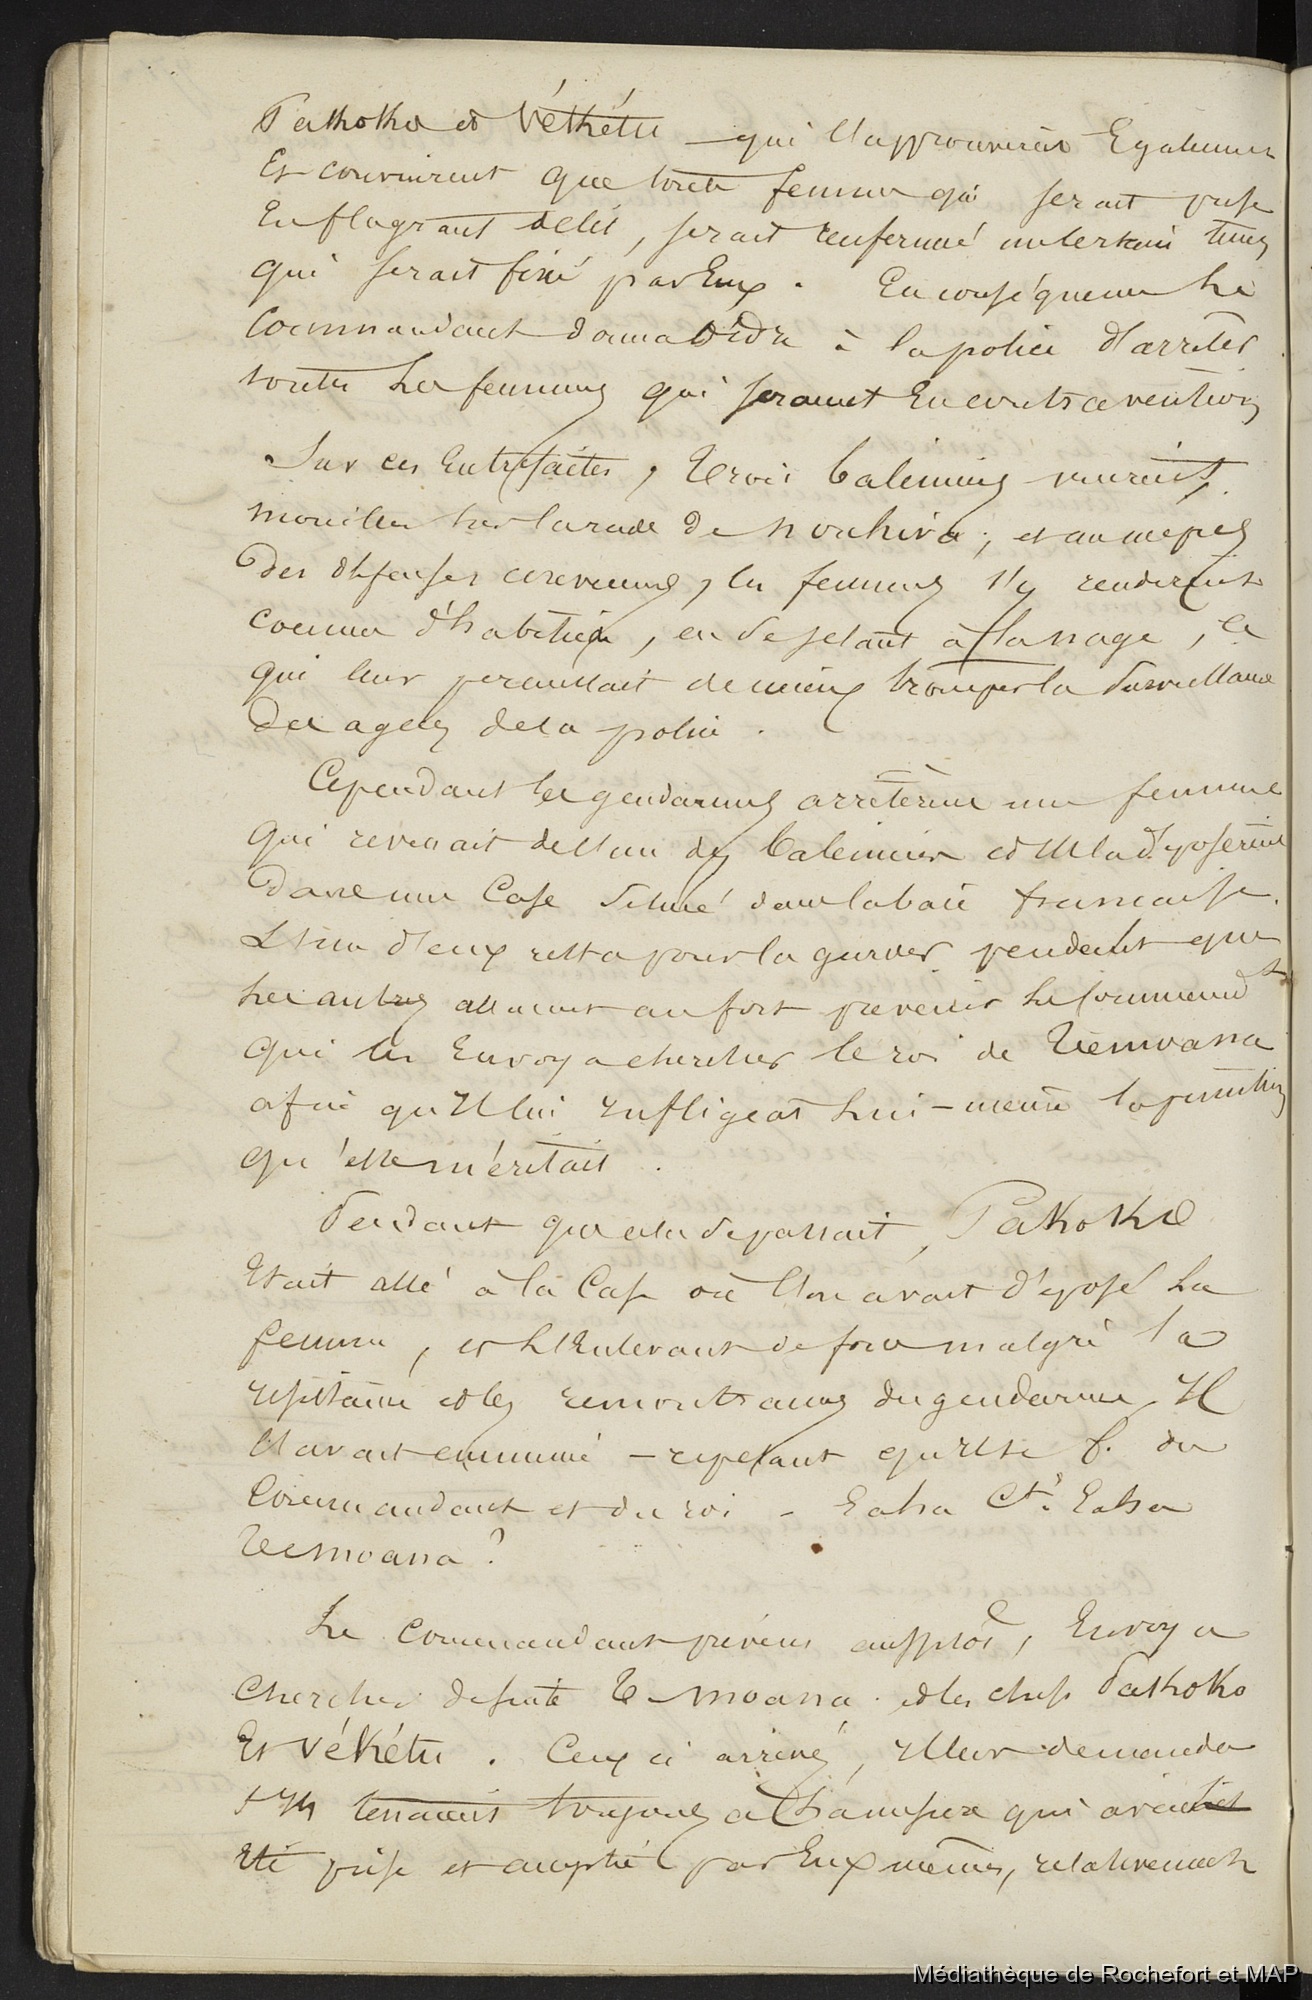 Pakoko et Vékétu qui l'approuvèrent Egalement
Et convinrent que toute femme qui serait prise
En flagrant délit, serait renfermé un certain temps
qui serait fixé par Eux. En conséquence le
Commandant donna ordre à la police d'arrêter
toutes les femmes qui seraient En contravention
Sur ces Entrefaites, trois baleiniers vinrent
mouiller sur la rade de Noukiva, et au mépris
des défenses convenues, les femmes s'y rendirent
comme d'habitude, en se jetant à la nage, ce
qui leur permettait de mieux tromper la surveillance
des agens de la police.
Cependant les gendarmes arrêtèrent une femme
qui revenait de l'un des baleiniers et la déposèrent
dans une Case située dans la baie française.
L'un d'eux resta pour la garder pendant que
les autres allèrent au fort prévenir le Command^t
qui les Envoya chercher le roi de Témoana
afin qu'Il lui infligeat lui-même la punition
qu'elle méritait.
Pendant que cela se passait, Pakoko
Etait allé à la Case où l'on avait déposé la
femme, et l'Enlevant de force malgré la
résistance et les remontrances du gendarme, Il
l'avait emmené – repetant qu'Il se f. du
Commandant et du roi – Eaha C^t. Eaha
Temoana ?
Le Commandant prévenu aussitôt, Envoya
chercher de suite Te moana et les chefs Pakoko
Et Vékétu. Ceux ci arrivés, Il leur demanda
s'Ils tenaient toujours à la mesure qui avait
Eté prise et acceptée par Eux mêmes, relativement